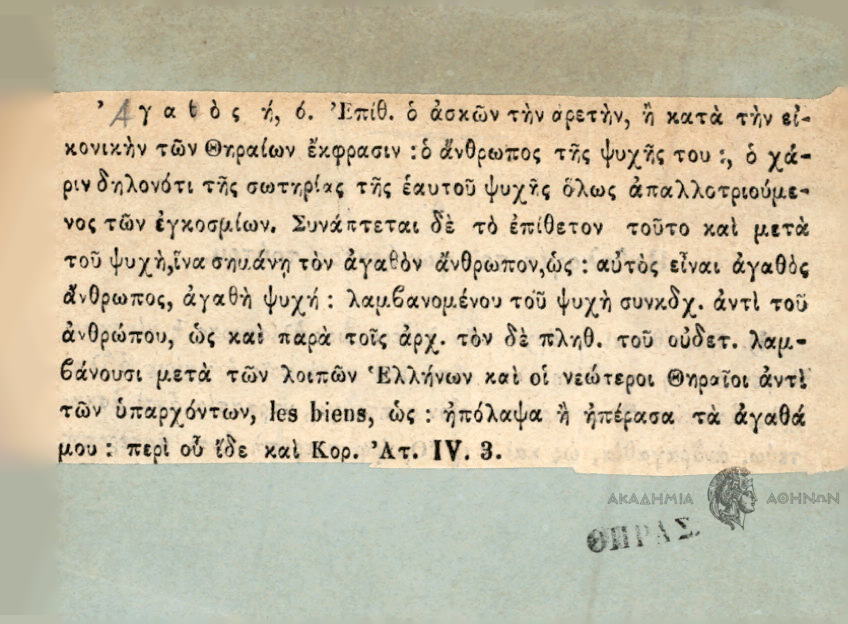 Ἀγαθὸς ή, ό. Ἐπίθ. ὁ ἀσκῶν τὴν αρετὴν, ἢ κατὰ τὴν εἰ-
κονικὴν τῶν Θηραίων ἔκφρασιν : ὁ ἄνθρωπος τῆς ψυχῆς του :, ὁ χά-
ριν δηλονότι τῆς σωτηρίας τῆς ἑαυτοῦ ψυχῆς ὅλως ἀπαλλοτριούμε-
νος τῶν ἐγκοσμίων. Συνάπτεται δὲ τὸ ἐπίθετον τοῦτο καὶ μετὰ
τοῦ ψυχὴ, ἵνα σημάνῃ τὸν ἀγαθὸν ἄνθρωπον, ὡς : αὐτὸς εἶναι ἀγαθὸς
ἄνθρωπος, ἀγαθὴ ψυχή : λαμβανομένου τοῦ ψυχὴ συνκδχ. ἀντὶ τοῦ
ἀνθρώπου, ὡς καὶ παρὰ τοῖς ἀρχ. τὸν δὲ πληθ. τοῦ οὐδετ. λαμ-
βάνουσι μετὰ τῶν λοιπῶν Ἑλλήνων καὶ οἱ νεώτεροι Θηραῖοι ἀντὶ
τῶν ὑπαρχόντων, les biens, ὡς : ἠπόλαψα ἢ ἠπέρασα τὰ ἀγαθά
μου : περὶ οὗ ἴδε καὶ Κορ. Ἀτ. IV. 3.
ΑΚΑΔΗΜΙΑ ΑΘΗΝΩΝ
ΘΗΡΑΣ